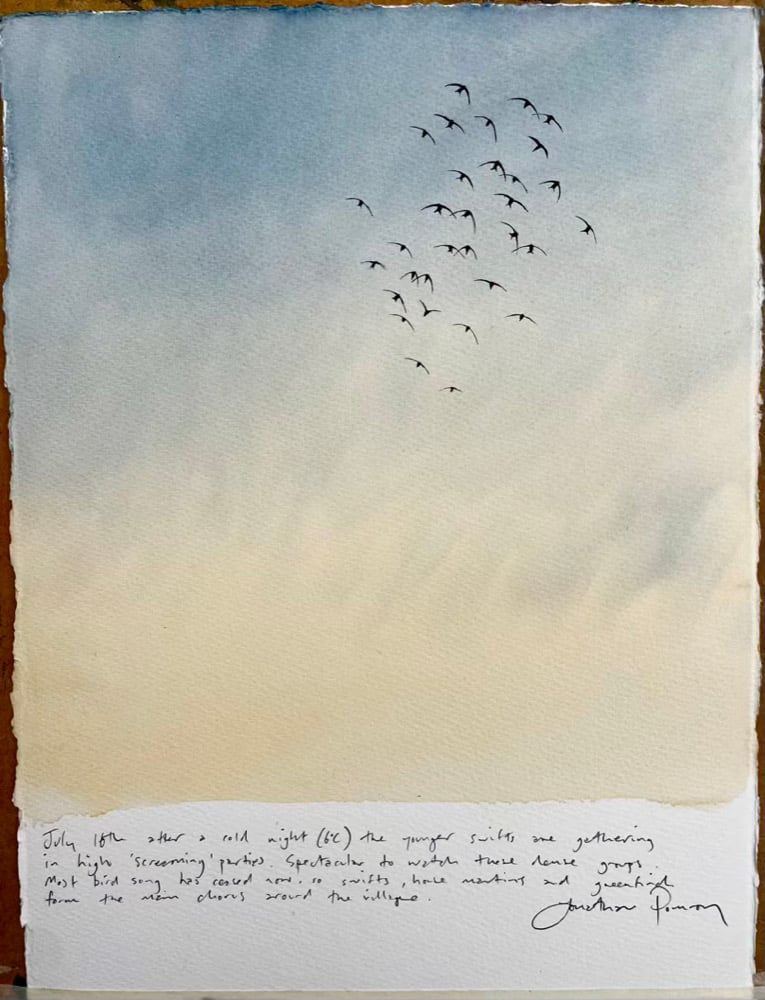 July 18th after a cold night (6°C) the younger swifts are gathering
in high 'screaming' parties. Spectacular to watch these dense groups.
Most bird song has ceased now, so swifts, house martins and greenfinch
form the main chorus around the village.
Jonathan Pomroy